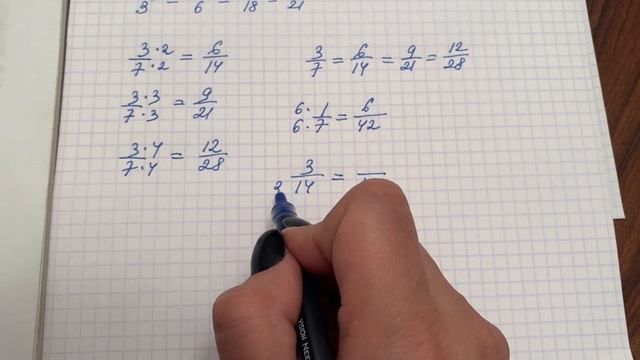 3 6 18 21
3·2/7·2 = 6/14
3/7 = 6/14 = 9/21 = 12/28
3·3/7·3 = 9/21
6·1/6·7 = 6/42
3·4/7·4 = 12/28
3/14 =
VISION NEE